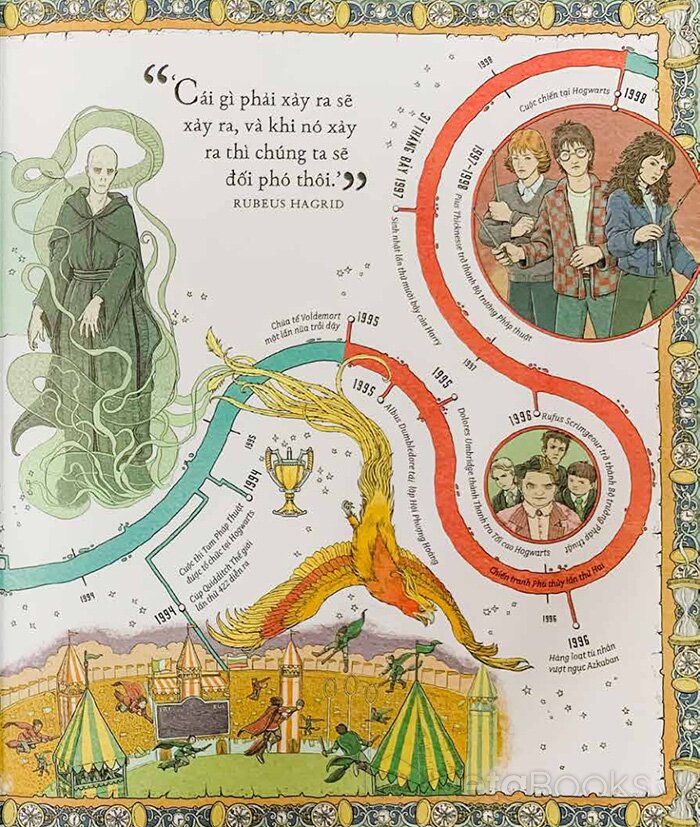 “‘Cái gì phải xảy ra sẽ
xảy ra, và khi nó xảy
ra thì chúng ta sẽ
đối phó thôi.’”
RUBEUS HAGRID
1998
Cuộc chiến tại Hogwarts
1998
1997–1998
Pius Thicknesse trở thành Bộ trưởng Pháp thuật
31 THÁNG BẢY 1997
Sinh nhật lần thứ mười bảy của Harry
1997
Chúa tể Voldemort
một lần nữa trỗi dậy
1995
1995
Albus Dumbledore tái lập Hội Phượng Hoàng
1995
Dolores Umbridge thành Thanh tra Tối cao Hogwarts
1996
Rufus Scrimgeour trở thành Bộ trưởng Pháp thuật
Chiến tranh Phù thủy lần thứ Hai
1996
1996
Hàng loạt tù nhân
vượt ngục Azkaban
1995
1994
Cuộc thi Tam Pháp Thuật
được tổ chức tại Hogwarts
Cúp Quidditch Thế giới
lần thứ 422 diễn ra
1994
1994
etaBooks